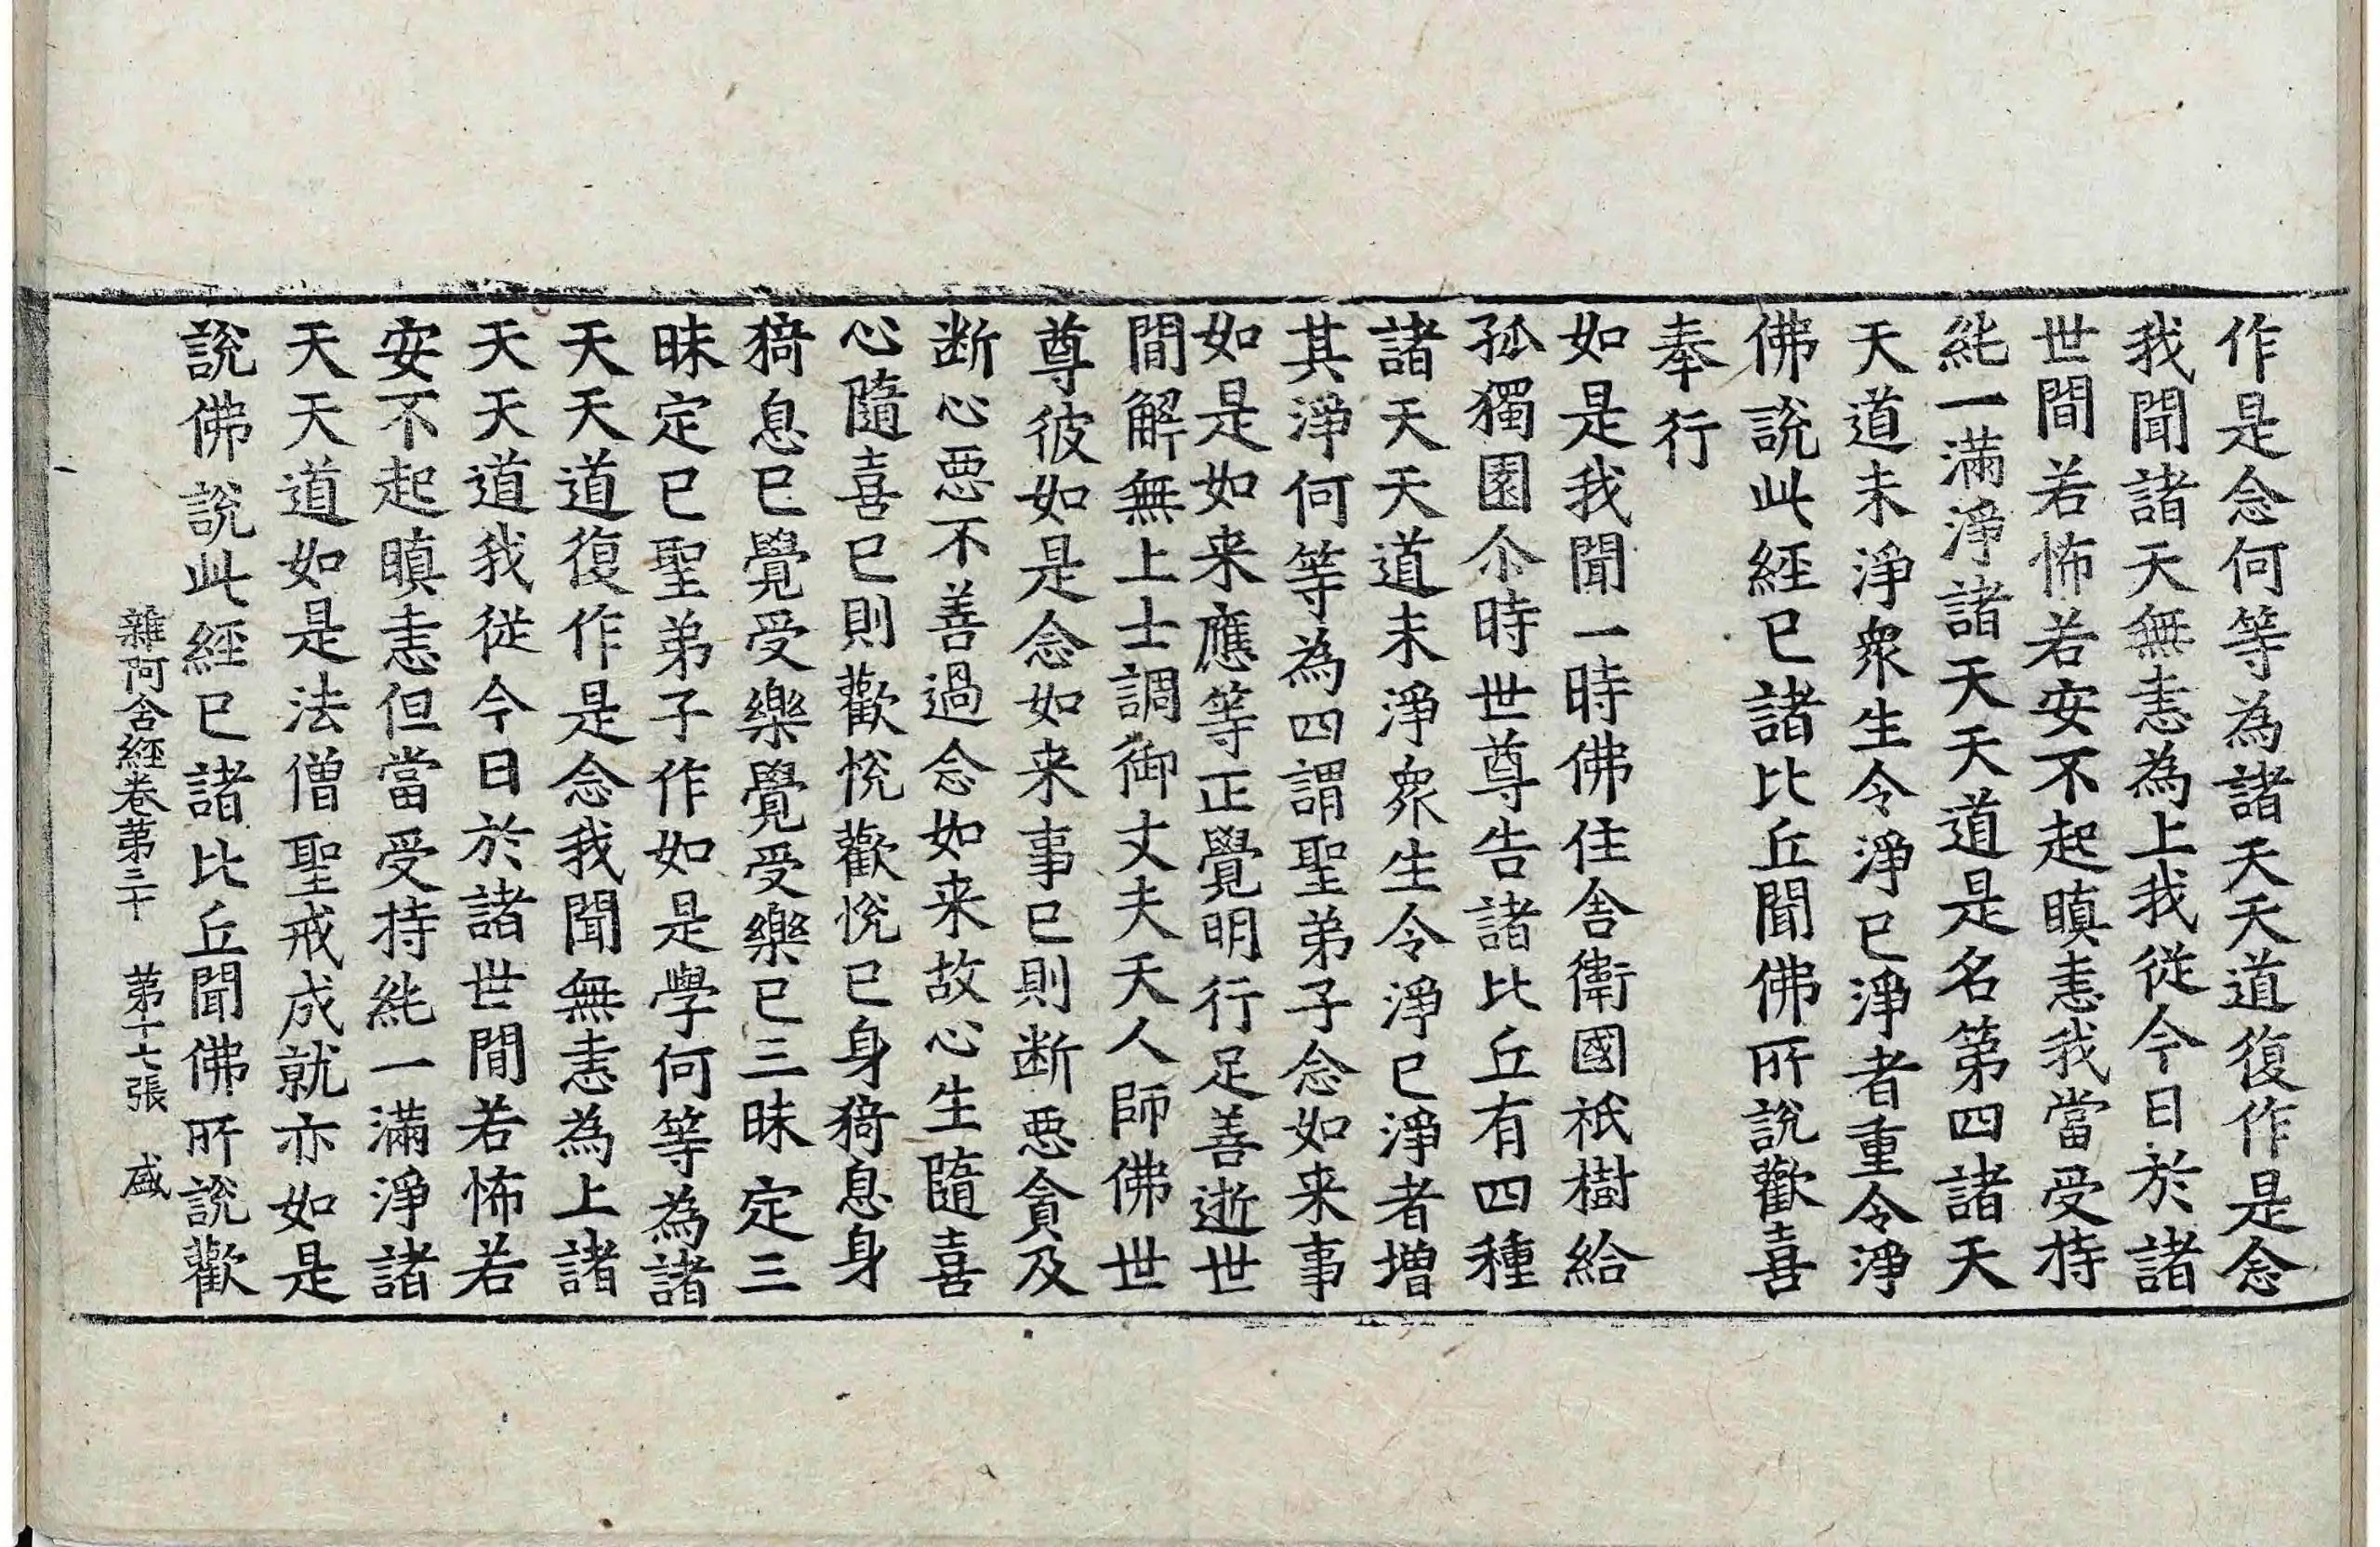 作是念何等為諸天天道復作是念
我聞諸天無恚為上我從今日於諸
世間若怖若安不起瞋恚我當受持
純一滿淨諸天天道是名第四諸天
天道未淨衆生令淨已淨者重令淨
佛說此經已諸比丘聞佛所說歡喜
奉行
如是我聞一時佛住舍衛國祇樹給
孤獨園尒時世尊告諸比丘有四種
諸天天道未淨衆生令淨已淨者增
其淨何等為四謂聖弟子念如来事
如是如来應等正覺明行足善逝世
間解無上士調御丈夫天人師佛世
尊彼如是念如来事已則断惡貪及
断心惡不善過念如来故心生隨喜
心隨喜已則歡悅歡悅已身猗息身
猗息已覺受樂覺受樂已三昧定三
昧定已聖弟子作如是學何等為諸
天天道復作是念我聞無恚為上諸
天天道我從今日於諸世間若怖若
安不起瞋恚但當受持純一滿淨諸
天天道如是法僧聖戒成就亦如是
說佛說此經已諸比丘聞佛所說歡
雜阿含經卷第三十 第十七張 盛